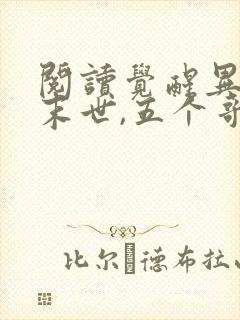 閱讀覺醒異
末世,五个哥
比尔 德布拉